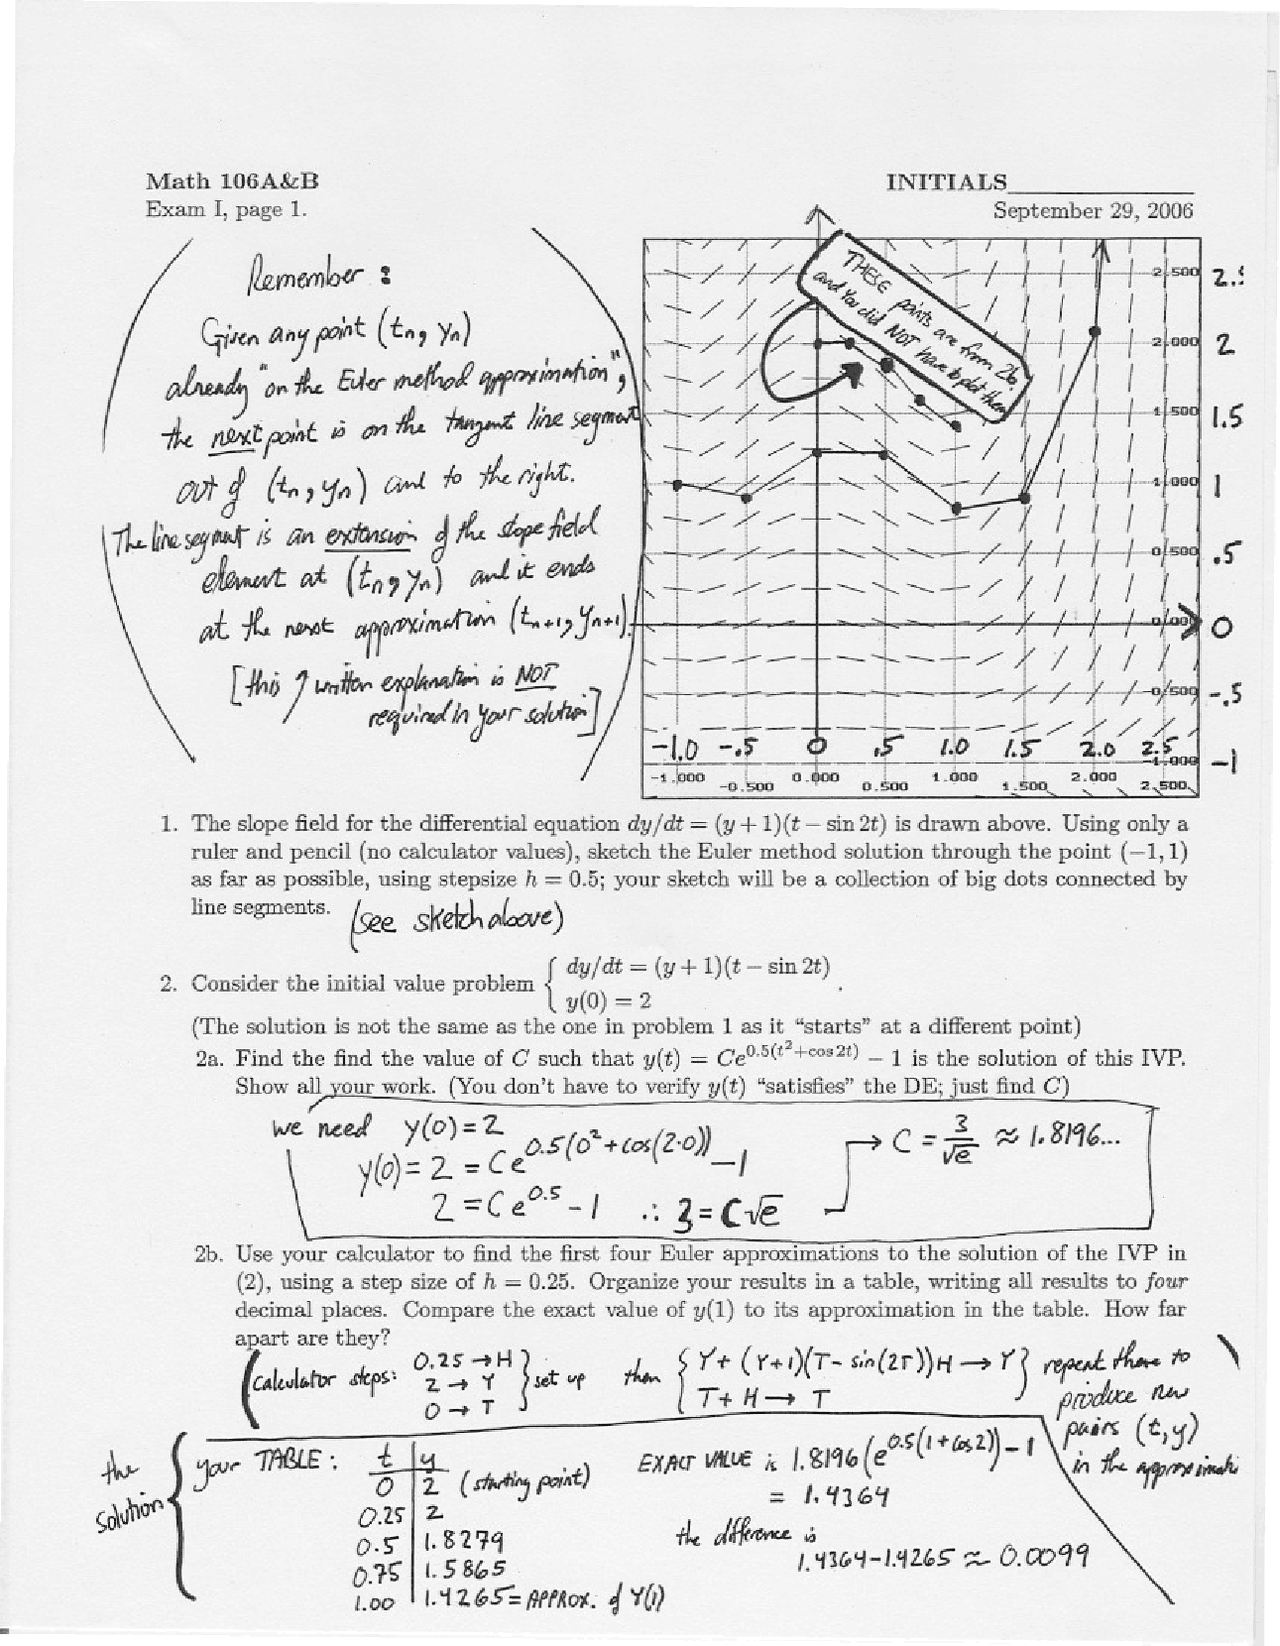 Math 106A&B
Exam I, page 1.
INITIALS
September 29, 2006
Remember:
Given any point (tn, yn)
already "on the Euler method approximation",
the next point is on the tangent line segment
out of (tn, yn) and to the right.
The line segment is an extension of the slope field
element at (tn, yn) and it ends
at the next approximation (tn+1, yn+1).
[this ↑ written explanation is NOT
required in your solution]
THESE points are from 2b,
and you did NOT have to plot them
2.500 2.5
2.000 2
1.500 1.5
1.000 1
0.500 .5
0.000 0
-0.500 -.5
-1.0 -.5 0 .5 1.0 1.5 2.0 2.5
-1.000 -1
-1.000 -0.500 0.000 0.500 1.000 1.500 2.000 2.500
1. The slope field for the differential equation dy/dt = (y + 1)(t − sin 2t) is drawn above. Using only a
ruler and pencil (no calculator values), sketch the Euler method solution through the point (−1, 1)
as far as possible, using stepsize h = 0.5; your sketch will be a collection of big dots connected by
line segments. (see sketch above)
2. Consider the initial value problem { dy/dt = (y + 1)(t − sin 2t)
y(0) = 2 .
(The solution is not the same as the one in problem 1 as it “starts” at a different point)
2a. Find the find the value of C such that y(t) = Ce^0.5(t²+cos 2t) − 1 is the solution of this IVP.
Show all your work. (You don’t have to verify y(t) “satisfies” the DE; just find C)
we need y(0) = 2
y(0) = 2 = Ce^0.5(0²+cos(2·0)) −1
2 = Ce^0.5 − 1 ∴ 3 = C√e
→ C = 3/√e ≈ 1.8196...
2b. Use your calculator to find the first four Euler approximations to the solution of the IVP in
(2), using a step size of h = 0.25. Organize your results in a table, writing all results to four
decimal places. Compare the exact value of y(1) to its approximation in the table. How far
apart are they?
(calculator steps: 0.25 → H
2 → Y
0 → T } set up then { Y + (Y+1)(T− sin(2T))H → Y
T + H → T } repeat these to
produce new
pairs (t, y)
in the approximati
the
solution
your TABLE: t y
0 2 (starting point)
0.25 2
0.5 1.8279
0.75 1.5865
1.00 1.4265 = APPROX. of Y(1)
EXACT VALUE is 1.8196(e^0.5(1+cos2)) − 1
= 1.4364
the difference is
1.4364−1.4265 ≈ 0.0099